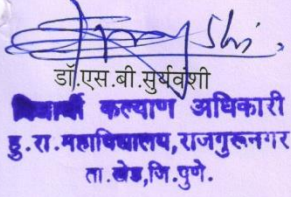 डॉ.एस.बी.सुर्यवंशी
विद्यार्थी कल्याण अधिकारी
हु.रा.महाविद्यालय,राजगुरूनगर
ता.खेड,जि.पुणे.